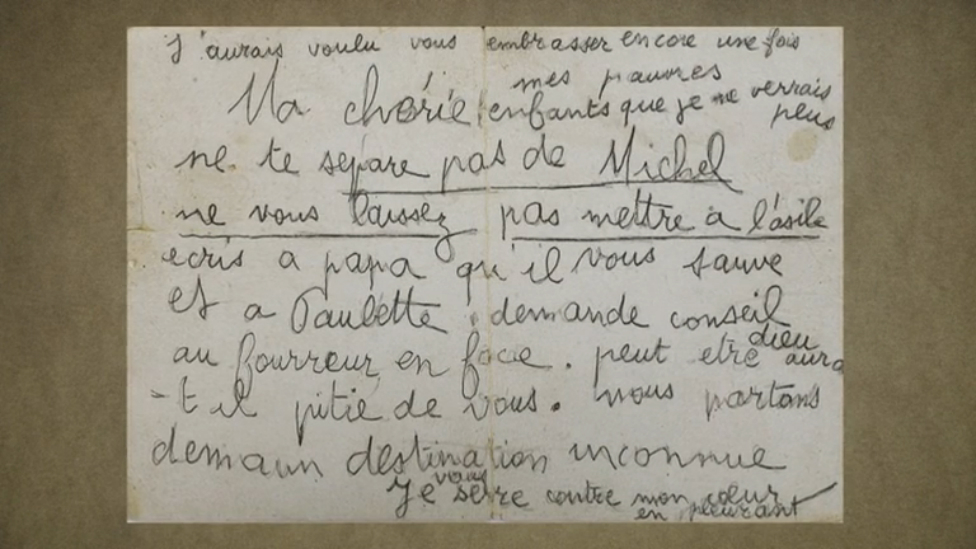 J'aurais voulu vous embrasser encore une fois
mes pauvres
enfants que je ne verrais
peus
Ma chérie
ne te separe pas de Michel
ne vous laissez pas mettre à l'asile
ecris a papa qu'il vous sauve
et a Paulette. demande conseil
au fourreur en face. peut etre dieu aura
-t il pitié de vous. nous partons
demain destination inconnue
Je vous serre contre mon cœur
en pleurant